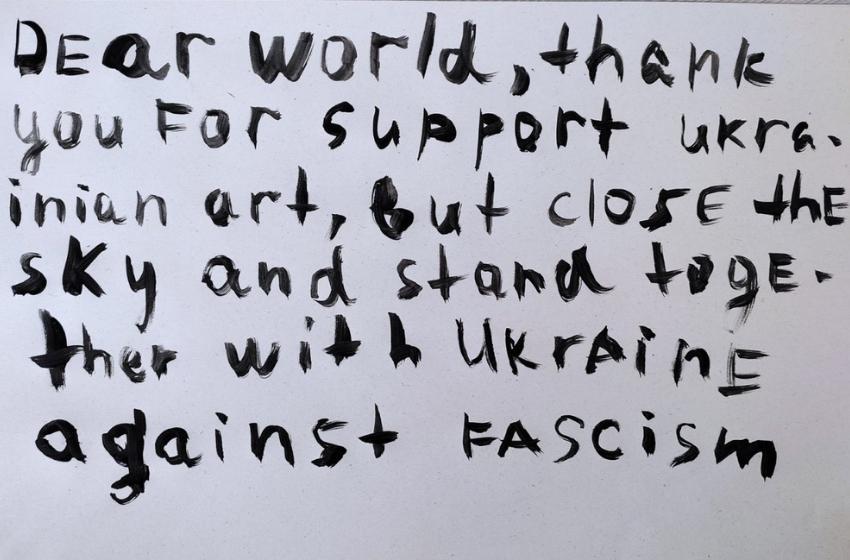 DEar world, thank
you For support ukra-
inian art, But closE thE
sky and stand togE-
ther with UkrAinE
against FAScism